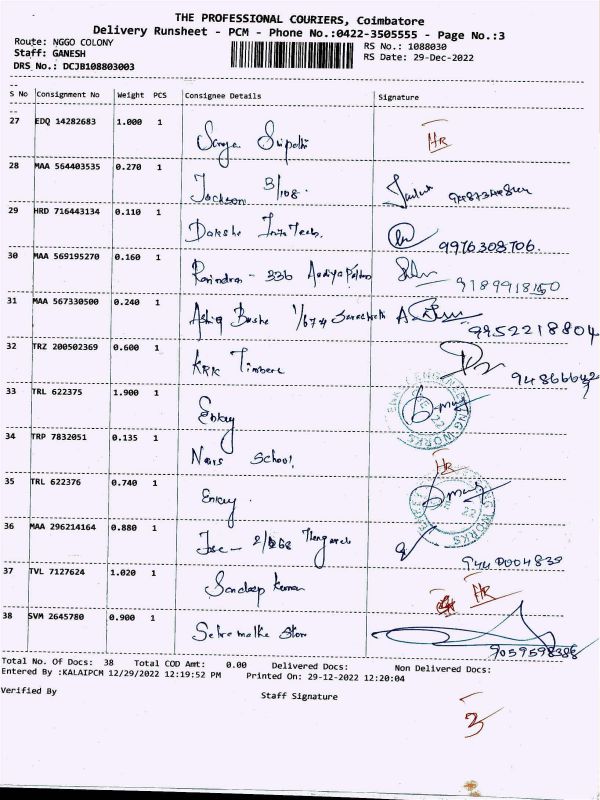 THE PROFESSIONAL COURIERS, Coimbatore
Delivery Runsheet - PCM - Phone No.:0422-3505555 - Page No.:3
Route: NGGO COLONY RS No.: 1088030
Staff: GANESH RS Date: 29-Dec-2022
DRS No.: DCJB108803003
S No Consignment No Weight PCS Consignee Details Signature
27 EDQ 14282683 1.000 1
HR
28 MAA 564403535 0.270 1
Jackson 3/108.
29 HRD 716443134 0.110 1
Dakshe Info Tech. 9976303706.
30 MAA 569195270 0.160 1
Ravindran - 336
31 MAA 567330500 0.240 1
Ashiq 9952218804
32 TRZ 200502369 0.600 1
KRK Timbers
33 TRL 622375 1.900 1
Enkay
34 TRP 7832051 0.135 1
School HR
35 TRL 622376 0.740 1
Enkay.
36 MAA 296214164 0.880 1
37 TVL 7127624 1.020 1
Sandeep Kumar HR
38 SVM 2645780 0.900 1
Store 9059598386
Total No. Of Docs: 38 Total COD Amt: 0.00 Delivered Docs: Non Delivered Docs:
Entered By :KALAIPCM 12/29/2022 12:19:52 PM Printed On: 29-12-2022 12:20:04
Verified By Staff Signature
3